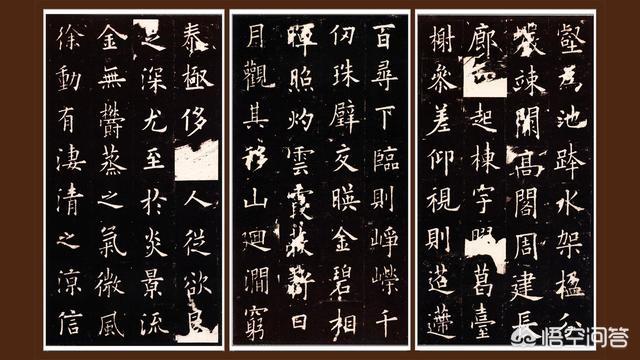 壑為池跨水架楹分
巖竦闕高閣周建長
廊起棟宇葛臺
榭參差仰視則迢遰
百尋下臨則崢嶸千
仞珠璧交暎金碧相
暉照灼雲霞蔽虧日
月觀其移山迴澗窮
泰極侈人從欲良
足深尤至於炎景流
金無欝蒸之氣微風
徐動有淒清之涼信
悟空问答